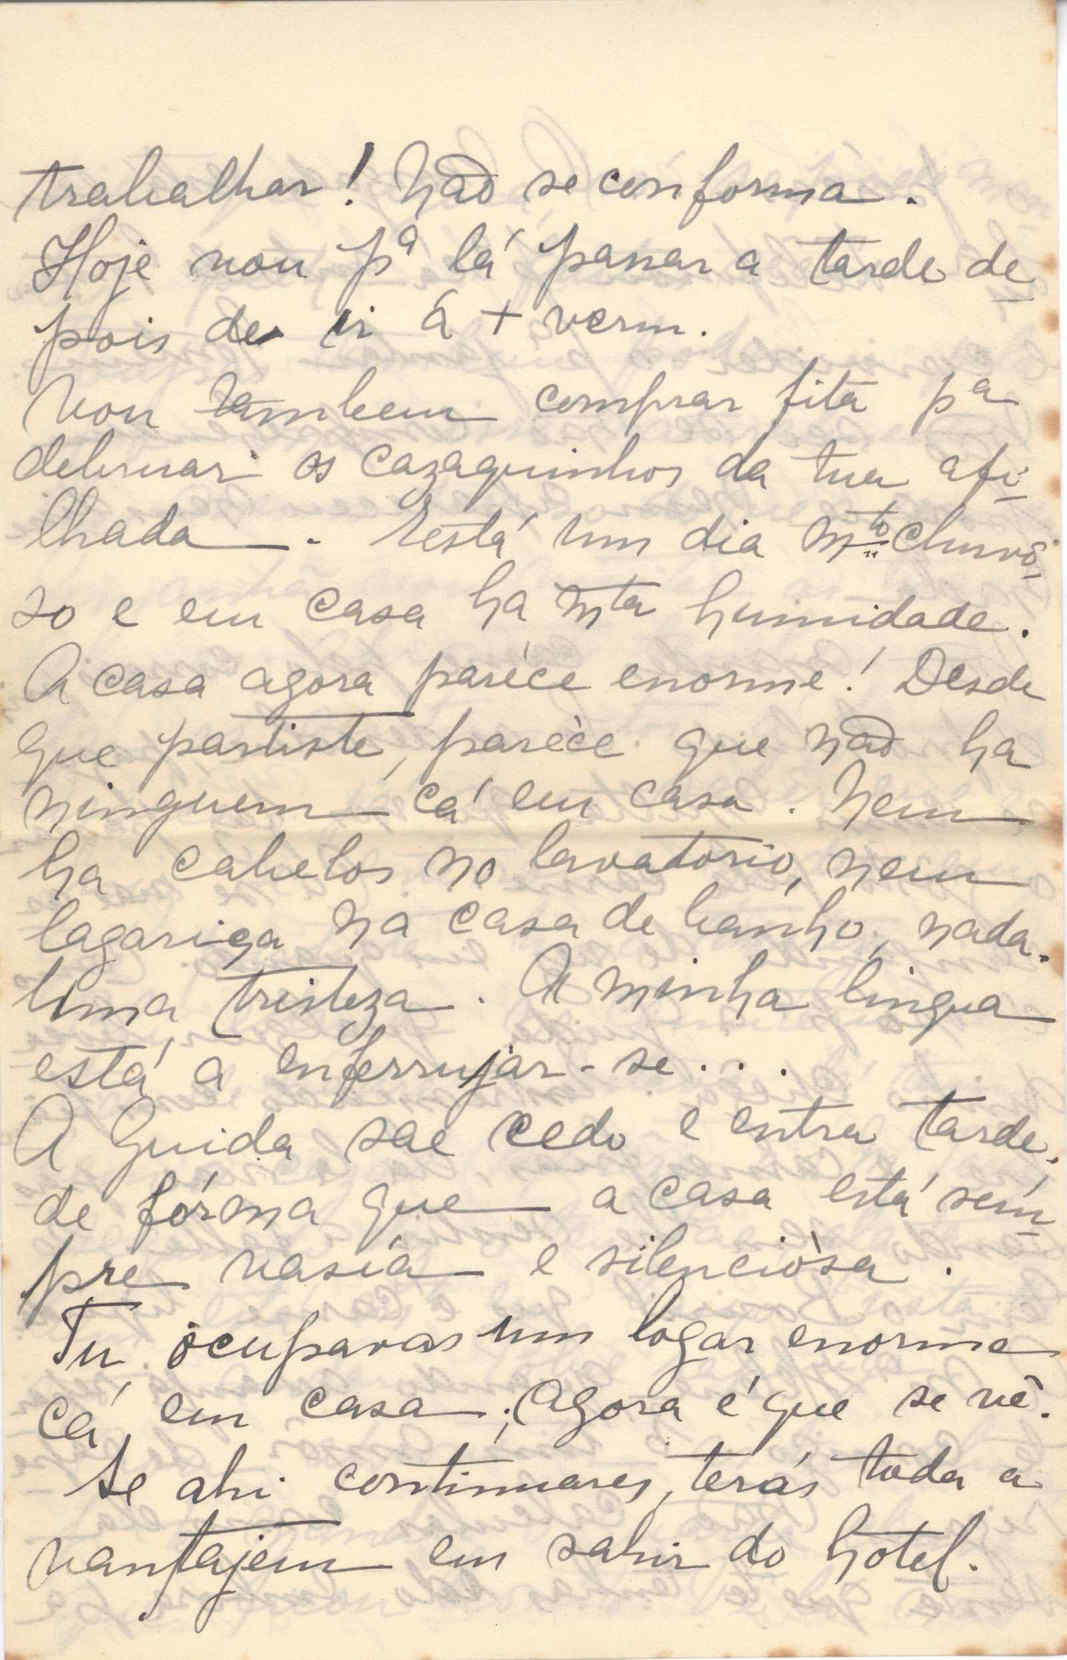 trabalhar! Não se conforma.
Hoje vou pª lá passar a tarde de-
pois de ir á + verm.
Vou tambem comprar fita pª
debruar os cazaquinhos da tua afi-
lhada. Está um dia mto chuvô-
so e em casa ha mta humidade.
A casa agora paréce enorme! Desde
que partiste, parèce que não ha
ninguem cá em casa. Nem
ha cabelos no lavatorio, nem
lagariça na casa de banho, nada.
Uma tristeza. A minha lingua
está a enferrujar-se...
A Guida sae cedo e entra tarde,
de fórma que a casa está sem-
pre vasía e silenciòsa.
Tu ocupavas um logar enorme
cá em casa; agora é que se vê.
Se ahi continuares, terás toda a
vantajem em sahir do hotel.